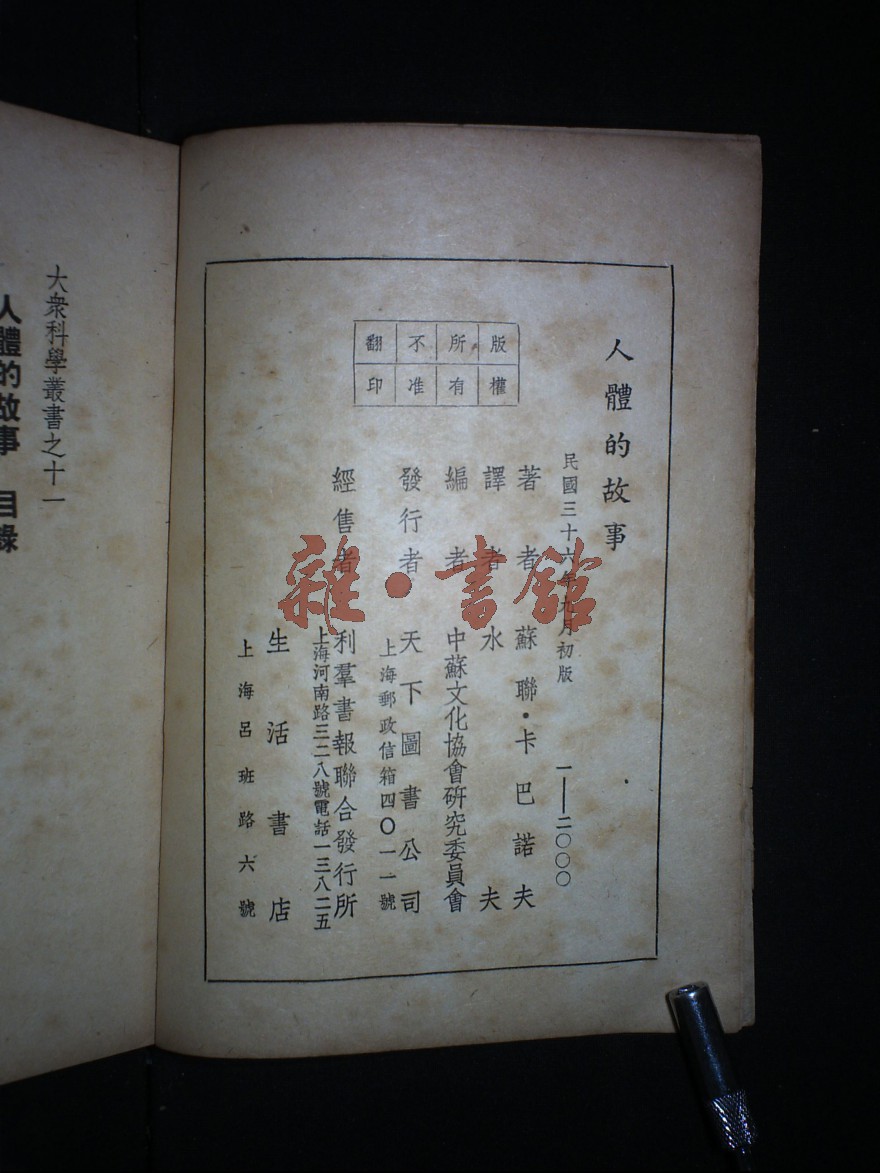 人體的故事
民國三十六年九月初版 一——二〇〇〇
著者 蘇聯·卡巴諾夫
譯者 水夫
編者 中蘇文化協會研究委員會
發行者 天下圖書公司
上海郵政信箱四〇一一號
經售者 利羣書報聯合發行所
上海河南路三二八號電話一三八二五
生活書店
上海呂班路六號
版權所有
不准翻印
雜·書館
大衆科學叢書之十一
人體的故事 目錄